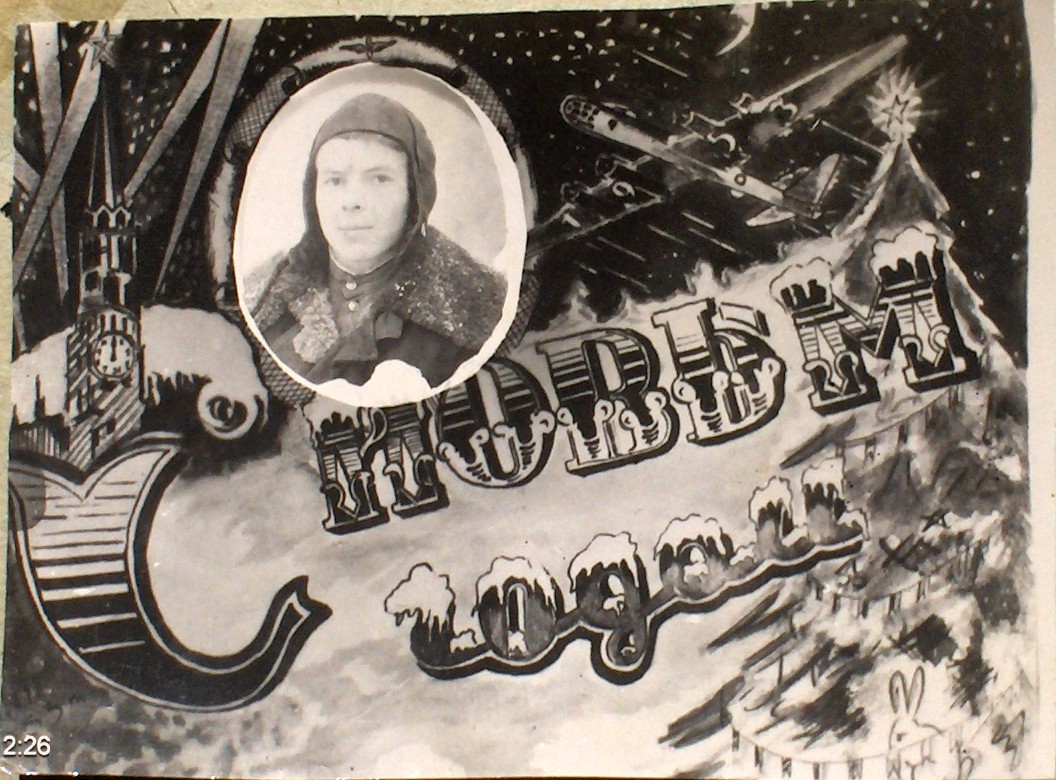 С новым
годом
2:26